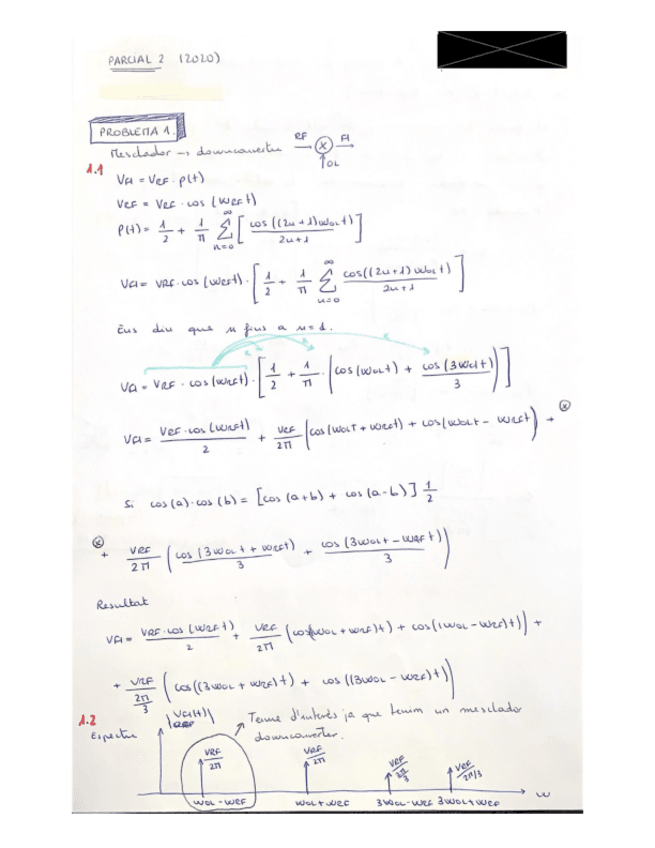 PARCIAL 2 (2020)
PROBLEMA 1.
Mesclador → downconverter RF → (x) → FI ↑OL
1.1
VFI = VRF · p(t)
VRF = VRF · cos (WRF t)
p(t) = 1/2 + 1/π ∑_{n=0}^{∞} [cos((2n+1)WOL t) / 2n+1]
VFI = VRF · cos(WRF t) · [1/2 + 1/π ∑_{n=0}^{∞} cos((2n+1)WOL t) / 2n+1]
Ens diu que n fins a n=1.
VFI = VRF · cos(WRF t) · [1/2 + 1/π · (cos(WOL t) + cos(3WOL t)/3)]
VFI = VRF · cos(WRF t)/2 + VRF/2π (cos(WOLT + WRF t) + cos(WOL t - WRF t) + (*)
Si cos(a) · cos(b) = [cos(a+b) + cos(a-b)] 1/2
(*)
+ VRF/2π (cos(3WOL t + WRF t)/3 + cos(3WOL t - WRF t)/3)
Resultat
VFI = VRF · cos(WRF t)/2 + VRF/2π (cos((WOL + WRF)t) + cos((WOL - WRF)t)) +
+ VRF/(2π/3) (cos((3WOL + WRF)t) + cos((3WOL - WRF)t))
1.2
Espectre |VFI(t)| Terme d'interés ja que tenim un mesclador
downconverter.
VRF/2π VRF/2π VRF/2π/3 VRF/2π/3
WOL - WRF WOL + WRF 3WOL - WRF 3WOL + WRF W